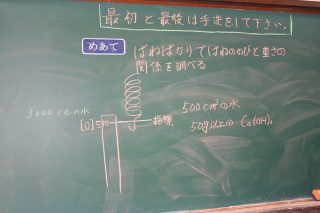 最初と最後は手洗をして下さい。
めあて
ばねばかりでばねののびと重さの
関係を調べる
3000cm水
500cm³の水
[0]
指標
50g以上の Ca(OH)₂